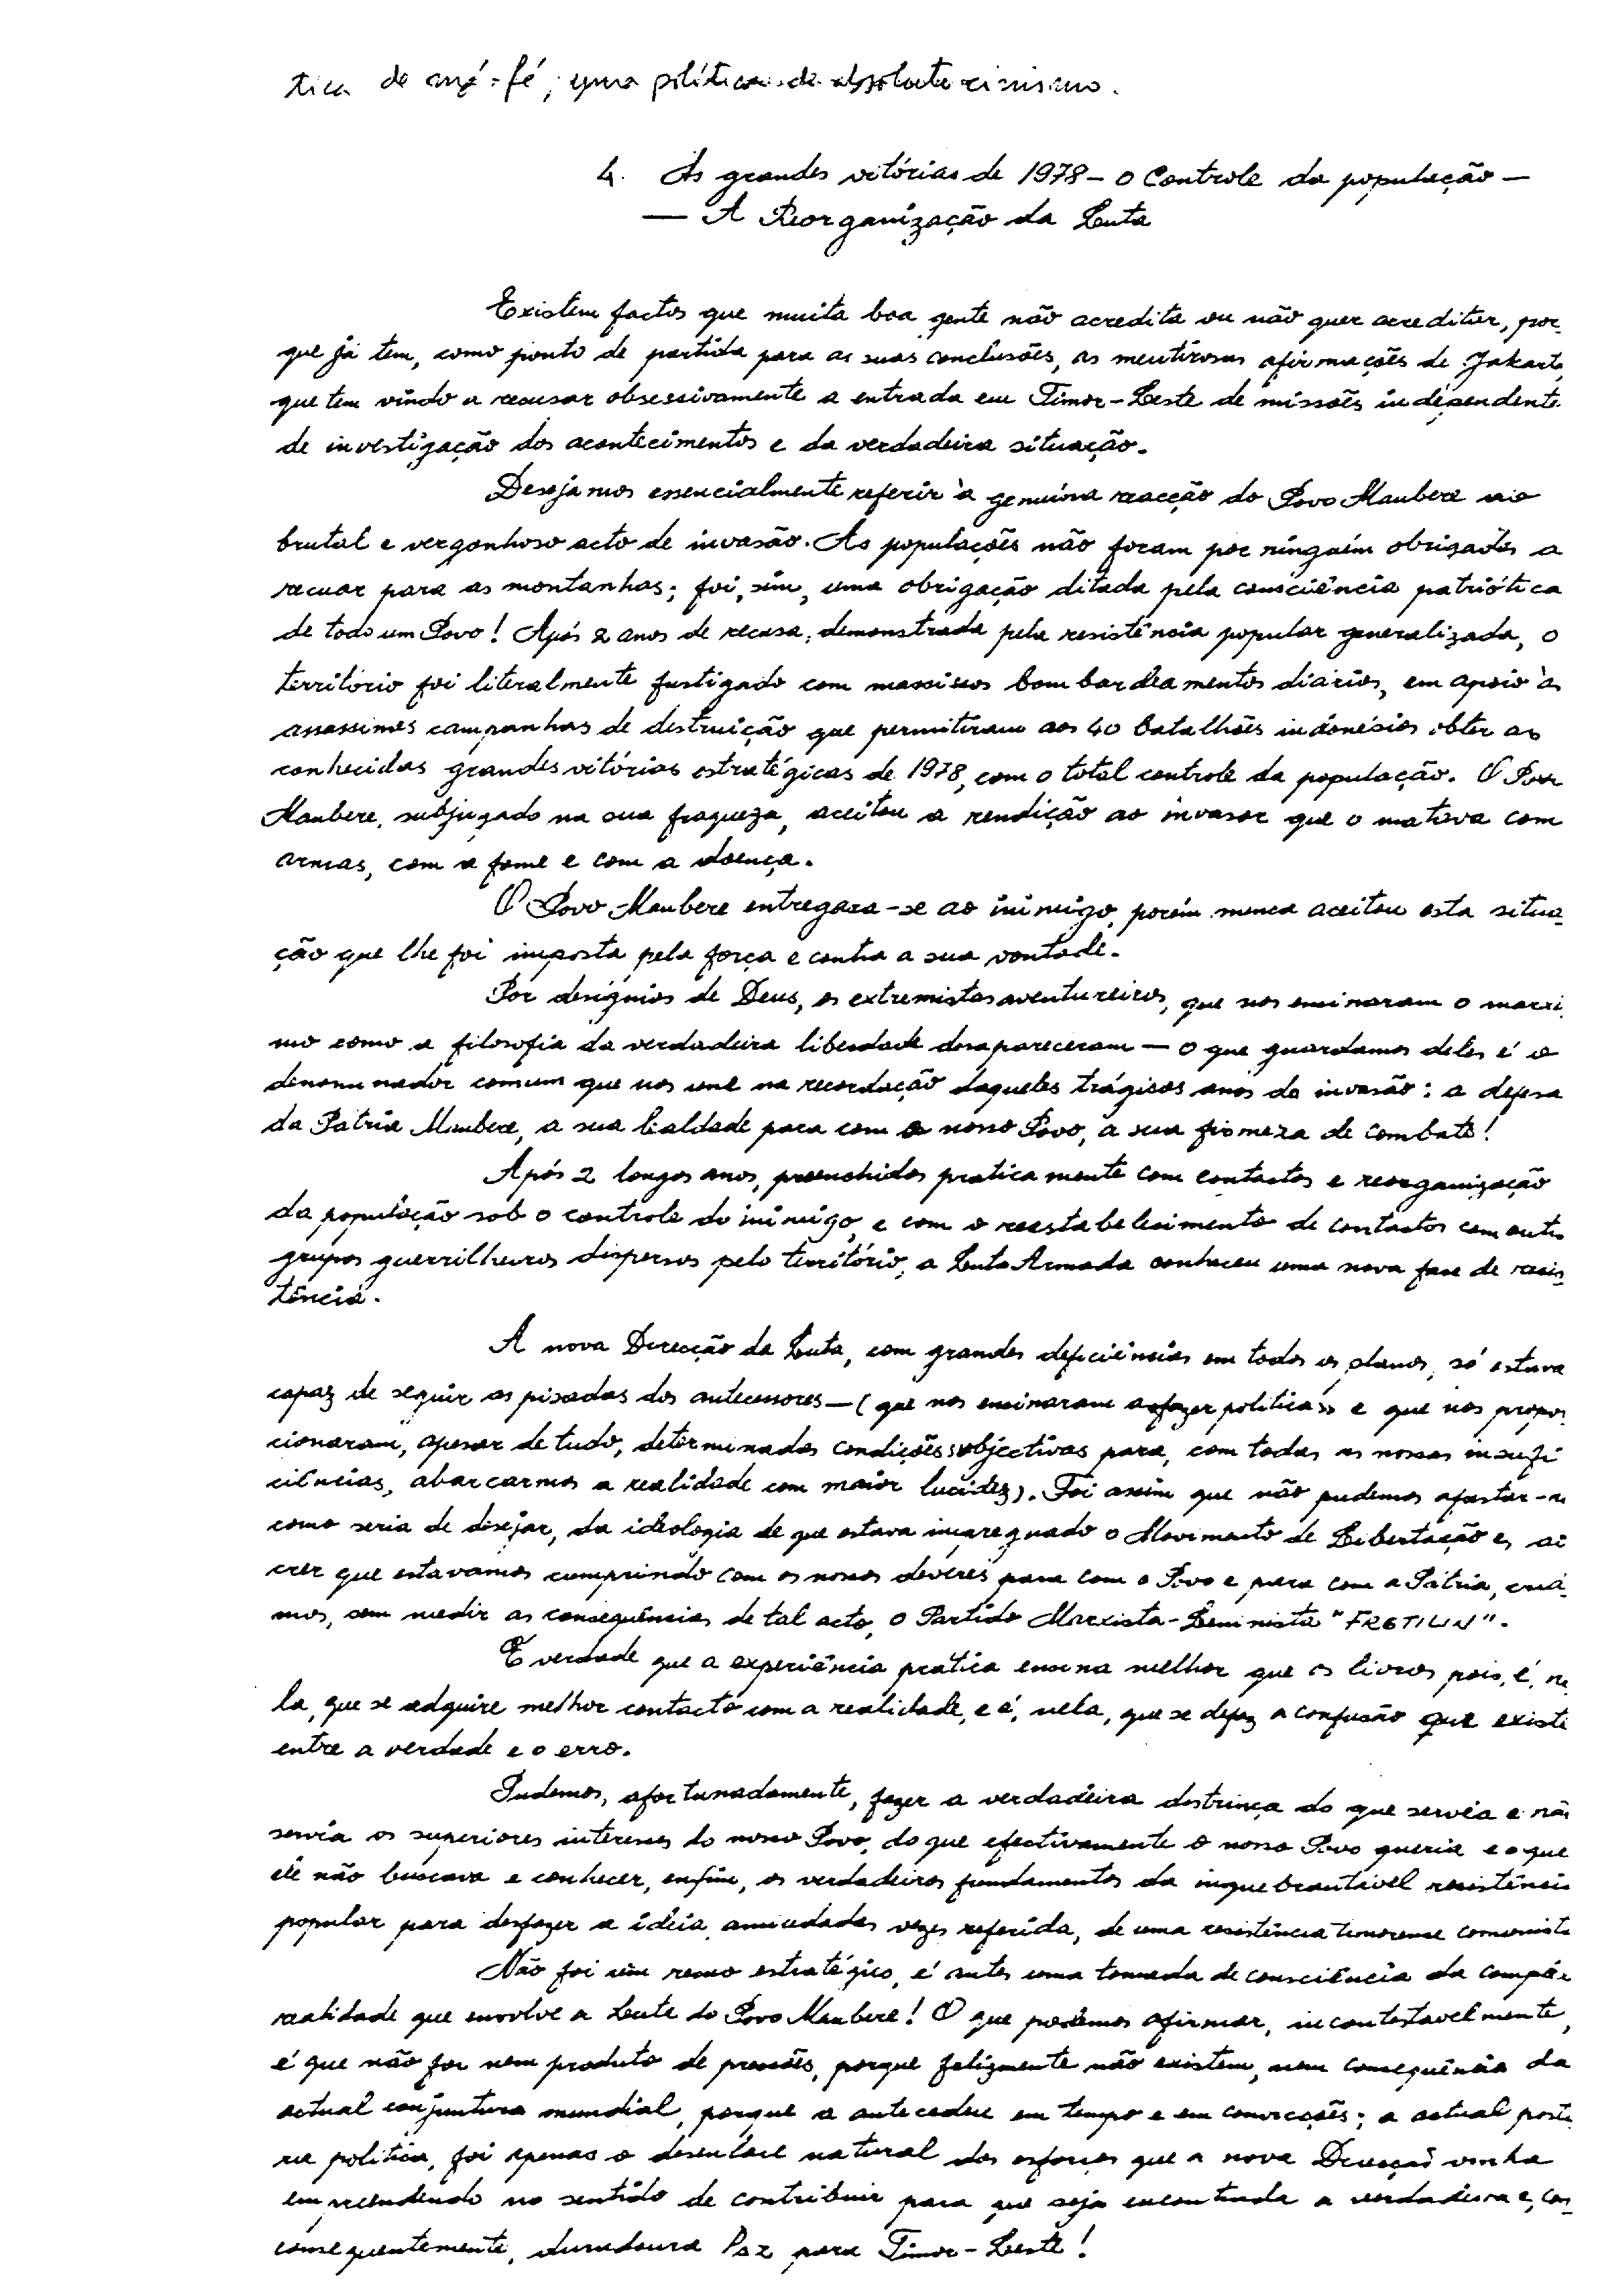 tica de má-fé, uma política de absoluto cinismo.
4. As grandes vitórias de 1978 - O Controle da população -
- A Reorganização da Luta
Existem factos que muita boa gente não acredita ou não quer acreditar, por-
que já tem, como ponto de partida para as suas conclusões, as mentirosas afirmações de Jakarta,
que tem vindo a recusar obsessivamente a entrada em Timor-Leste de missões independente
de investigação dos acontecimentos e da verdadeira situação.
Desejamos essencialmente referir à genuína reacção do Povo Maubere ao
brutal e vergonhoso acto de invasão. As populações não foram por ninguém obrigados a
recuar para as montanhas; foi, sim, uma obrigação ditada pela consciência patriótica
de todo um Povo! Após 2 anos de recusa, demonstrada pela resistência popular generalizada, o
território foi literalmente fustigado com massivos bombardeamentos diários, em apoio às
assassinas campanhas de destruição que permitiram aos 40 batalhões indonésios obter as
conhecidas grandes vitórias estratégicas de 1978, com o total controle da população. O Povo
Maubere, subjugado na sua fraqueza, aceitou a rendição ao invasor que o matava com
armas, com a fome e com a doença.
O Povo Maubere entregara-se ao inimigo, porém nunca aceitou esta situa-
ção que lhe foi imposta pela força e contra a sua vontade.
Por desígnios de Deus, os extremistas aventureiros, que nos ensinaram o marxi
mo como a filosofia da verdadeira liberdade desapareceram - o que guardamos deles é o
denominador comum que nos une na recordação daqueles trágicos anos da invasão: a defesa
da Pátria Maubere, a sua lealdade para com o nosso Povo, a sua firmeza de combate!
Após 2 longos anos, preenchidos praticamente com contactos e reorganização
da população sob o controle do inimigo, e com o reestabelecimento de contactos com outro
grupos guerrilheiros dispersos pelo território, a Luta Armada conheceu uma nova fase de resis-
tência.
A nova Direcção da Luta, com grandes deficiências em todos os planos, só estava
capaz de seguir as pisadas dos antecessores - (que nos ensinaram a «fazer política» e que nos propor
cionaram, apesar de tudo, determinadas condições objectivas para, com todas as nossas insufi
ciências, abarcarmos a realidade com maior lucidez). Foi assim que não pudemos afastar-
como seria de desejar, da ideologia de que estava impregnado o Movimento de Libertação e, ao
crer que estavamos cumprindo com os nossos deveres para com o Povo e para com a Pátria, criá-
mos, sem medir as consequências de tal acto, o Partido Marxista-Leninista "FRETILIN".
É verdade que a experiência prática ensina melhor que os livros pois, é, ne
la, que se adquire melhor contacto com a realidade, e é, nela, que se desfaz a confusão que existe
entre a verdade e o erro.
Pudemos, afortunadamente, fazer a verdadeira destrinça do que servia e não
servia os superiores interesses do nosso Povo, do que efectivamente o nosso Povo queria e o que
ele não buscava e conhecer, enfim, os verdadeiros fundamentos da inquebrantável resistência
popular para desfazer a ideia, amiudadas vezes referida, de uma resistência timorense comunista
Não foi um recuo estratégico, é antes uma tomada de consciência da complexa
realidade que envolve a Luta do Povo Maubere! O que podemos afirmar, incontestavelmente,
é que não foi nem produto de pressões, porque felizmente não existem, nem consequência da
actual conjuntura mundial, porque a antecedeu em tempo e em convicções; a actual postu
ra política, foi apenas o desenlace natural dos esforços que a nova Direcção vinha
empreendendo no sentido de contribuir para que seja encontrada a verdadeira e, con-
consequentemente, duradoura Paz para Timor-Leste!